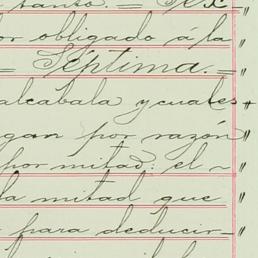 tanto. = Sex-
or obligado á la
= Séptima. =
alcabala y cuales
gan por razón
por mitad: el ~
la mitad que
para deducir-